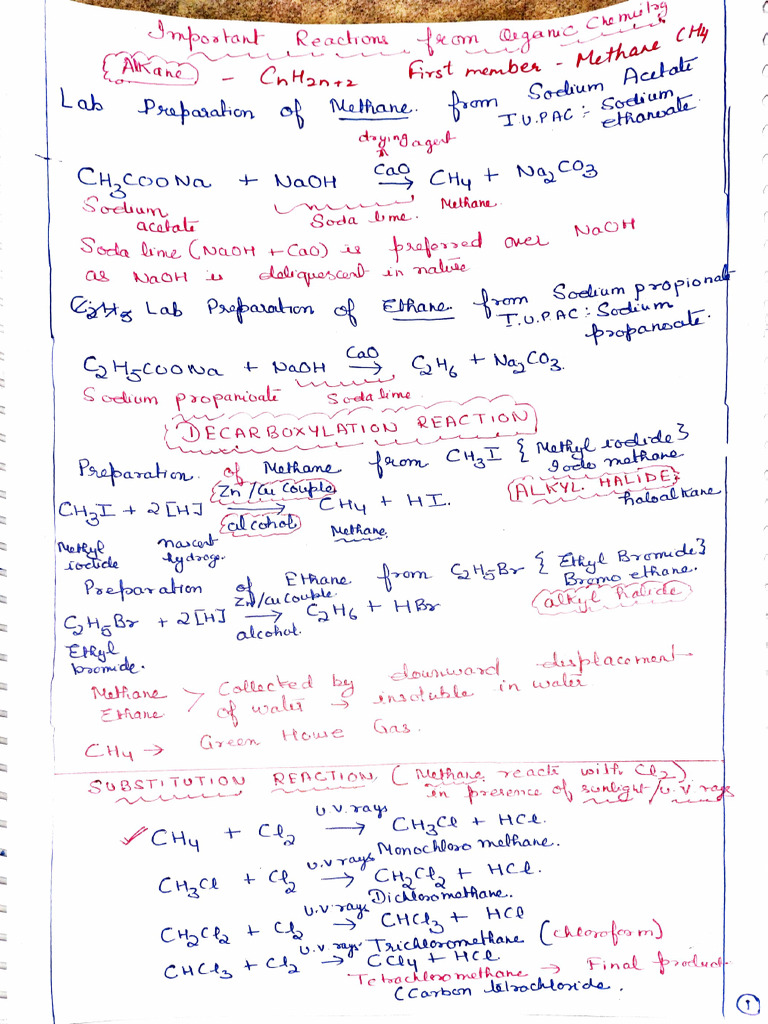 Important Reactions from Organic Chemistry
Alkane - CnH2n+2 First member - Methane CH4
Lab Preparation of Methane from Sodium Acetate
I.U.PAC : Sodium ethanoate
drying agent
CH3COONa + NaOH CaO → CH4 + Na2CO3
Sodium acetate Soda lime. Methane
Soda lime (NaOH + CaO) is preferred over NaOH
as NaOH is deliquescent in nature
Lab Preparation of Ethane from Sodium propionate
I.U.PAC : Sodium propanoate.
C2H5COONa + NaOH CaO → C2H6 + Na2CO3.
Sodium propanioate Soda lime
DECARBOXYLATION REACTION
Preparation of Methane from CH3I { Methyl iodide }
Iodo methane
Zn/Cu Couple ALKYL HALIDE
CH3I + 2[H] → CH4 + HI. haloalkane
alcohol
Methyl iodide nascent hydroge. Methane
Preparation of Ethane from C2H5Br { Ethyl Bromide }
Bromo ethane.
Zn/Cu couple. alkyl halide
C2H5Br + 2[H] → C2H6 + HBr
alcohol.
Ethyl bromide.
Methane Ethane > Collected by downward displacement
of water → insoluble in water
CH4 → Green House Gas.
SUBSTITUTION REACTION (Methane reacts with Cl2)
in presence of sunlight/u.v rays
u.v.rays
CH4 + Cl2 → CH3Cl + HCl.
Monochloro methane.
u.v rays
CH3Cl + Cl2 → CH2Cl2 + HCl.
Dichloromethane.
u.v rays
CH2Cl2 + Cl2 → CHCl3 + HCl
Trichloromethane (chloroform)
u.v rays
CHCl3 + Cl2 → CCl4 + HCl
Tetrachloromethane → Final product
(Carbon tetrachloride.
1